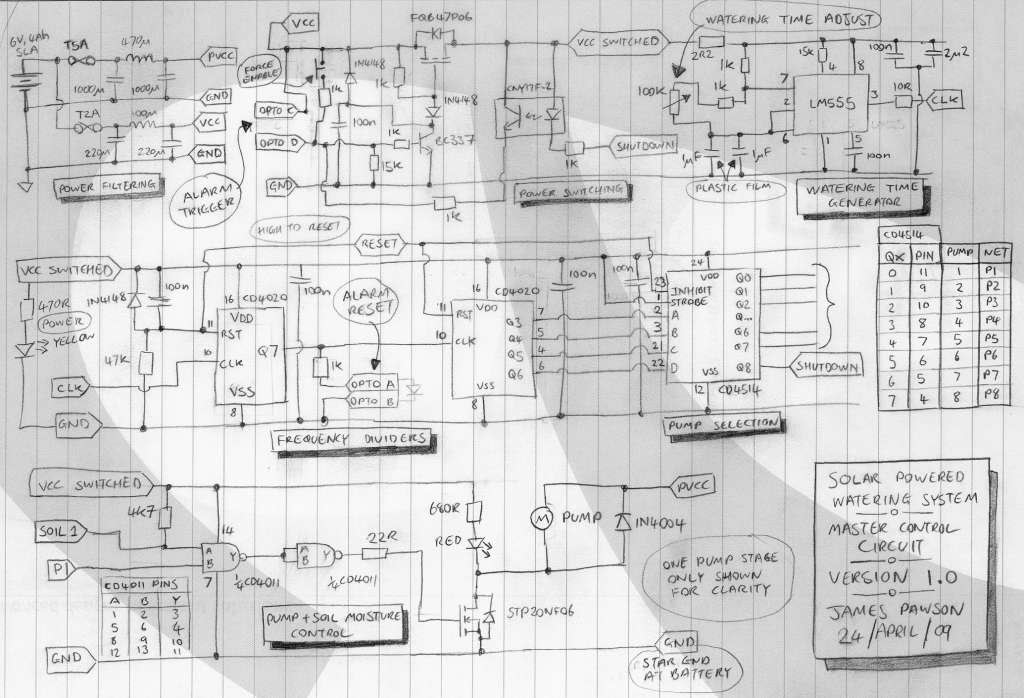 6V, 4Ah
SLA
T5A
470µ
PVCC
1000µ
1000µ
GND
T2A
VCC
220µ
220µ
GND
POWER FILTERING
VCC
FORCE
ENABLE
OPTO C
OPTO D
ALARM
TRIGGER
GND
1N4148
1k
1k
100n
1k
15k
FQB47P06
1N4148
BC337
1k
CNY17F-2
1k
SHUTDOWN
POWER SWITCHING
HIGH TO RESET
VCC SWITCHED
WATERING TIME ADJUST
2R2
100k
1k
1k
15k
4
8
7
2
6
3
1
5
LM555
100n
2µ2
10R
CLK
1µF
1µF
PLASTIC FILM
100n
WATERING TIME
GENERATOR
RESET
VCC SWITCHED
470R
POWER
YELLOW
1N4148
100n
47K
CLK
GND
16
CD4020
VDD
11
RST
10
CLK
Q7
VSS
8
100n
ALARM
RESET
1k
OPTO A
OPTO B
FREQUENCY DIVIDERS
16
CD4020
VDD
11
RST
10
CLK
Q3
Q4
Q5
Q6
7
5
4
6
VSS
8
100n
100n
24
VDD
23
INHIBIT
1
STROBE
2
A
3
B
21
C
22
D
Q0
Q1
Q2
Q...
Q6
Q7
Q8
VSS
12
CD4514
SHUTDOWN
PUMP SELECTION
CD4514
QX PIN PUMP NET
0 11 1 P1
1 9 2 P2
2 10 3 P3
3 8 4 P4
4 7 5 P5
5 6 6 P6
6 5 7 P7
7 4 8 P8
VCC SWITCHED
4k7
SOIL 1
P1
GND
14
A
B
Y
7
1/4 CD4011
A
B
Y
1/4 CD4011
22R
CD4011 PINS
A B Y
1 2 3
5 6 4
8 9 10
12 13 11
PUMP + SOIL MOISTURE
CONTROL
680R
RED
STP20NF06
M
PUMP
1N4004
PVCC
ONE PUMP STAGE
ONLY SHOWN
FOR CLARITY
GND
STAR GND
AT BATTERY
SOLAR POWERED
WATERING SYSTEM
MASTER CONTROL
CIRCUIT
VERSION 1.0
JAMES PAWSON
24/APRIL/09